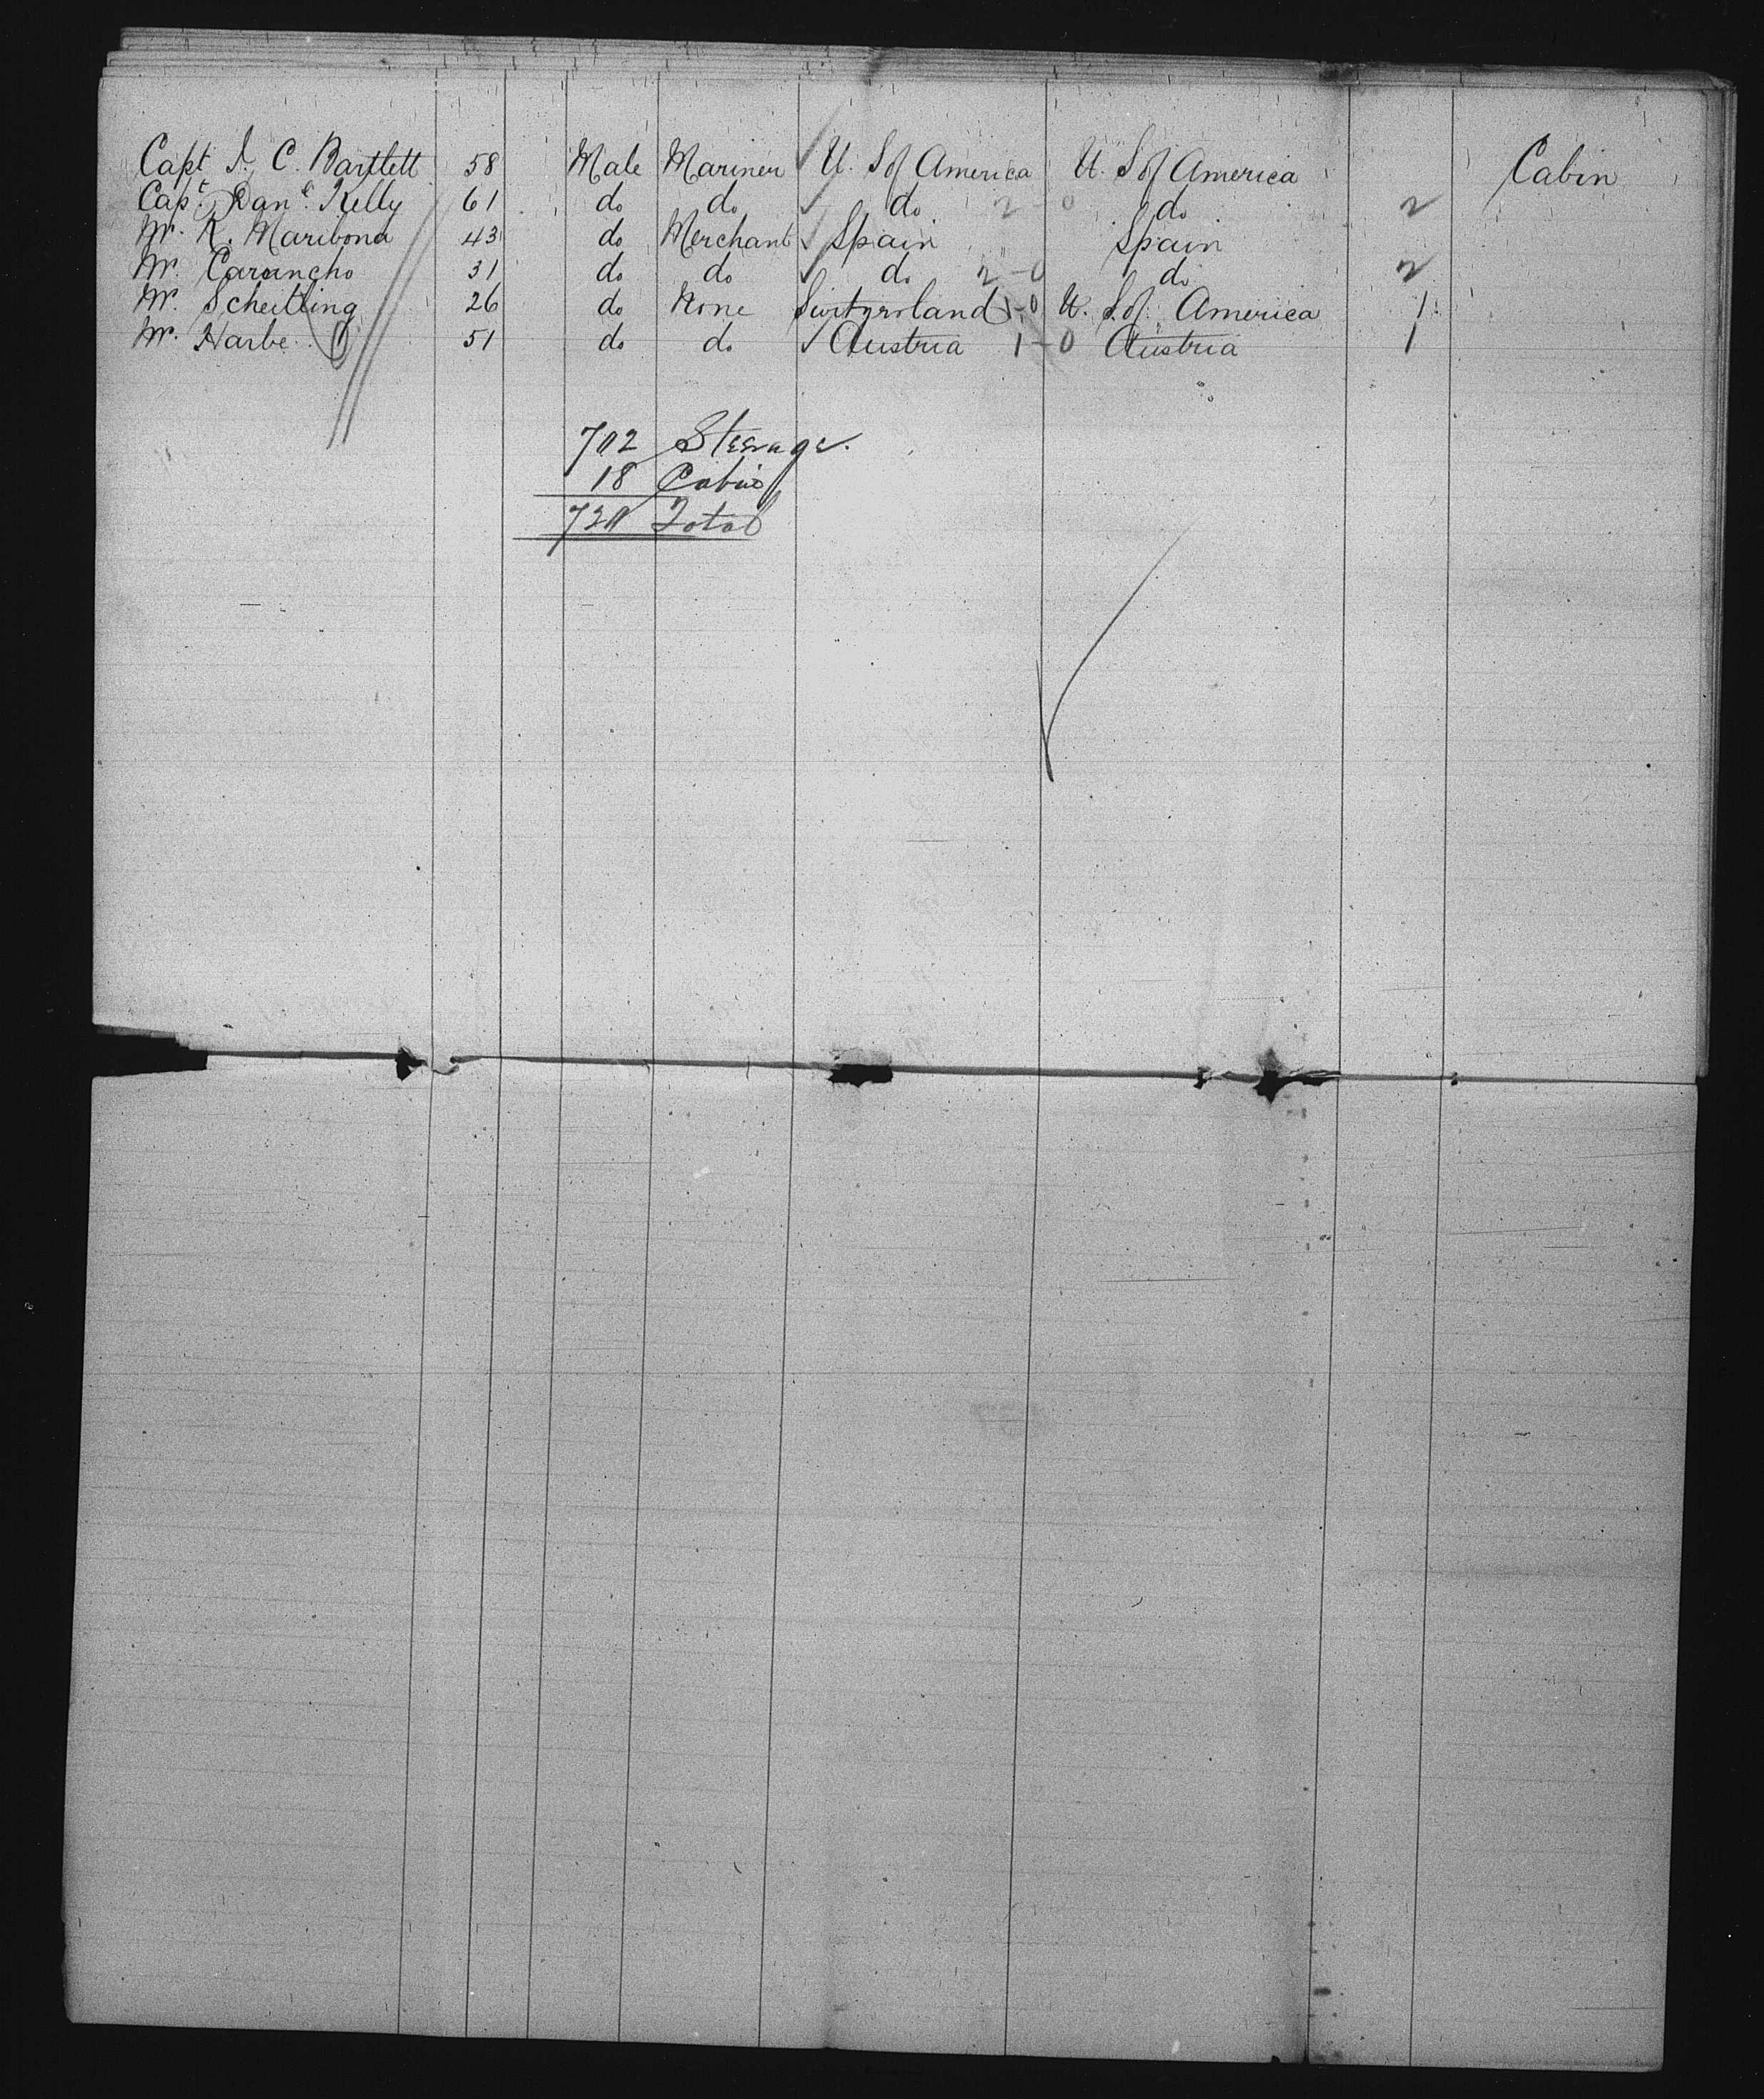 Capt I. C. Bartlett 58 Male Mariner U. S of America U. S of America Cabin
Capt Danl Kelly 61 do do do 2-0 do 2
Mr. R. Maribona 43 do Merchant Spain Spain
Mr. Carancho 31 do do do 2-0 do 2
Mr. Scheitling 26 do None Switzerland 1-0 U. S. of America 1
Mr. Harbe 51 do do Austria 1-0 Austria 1
702 Steerage.
18 Cabin
720 Total